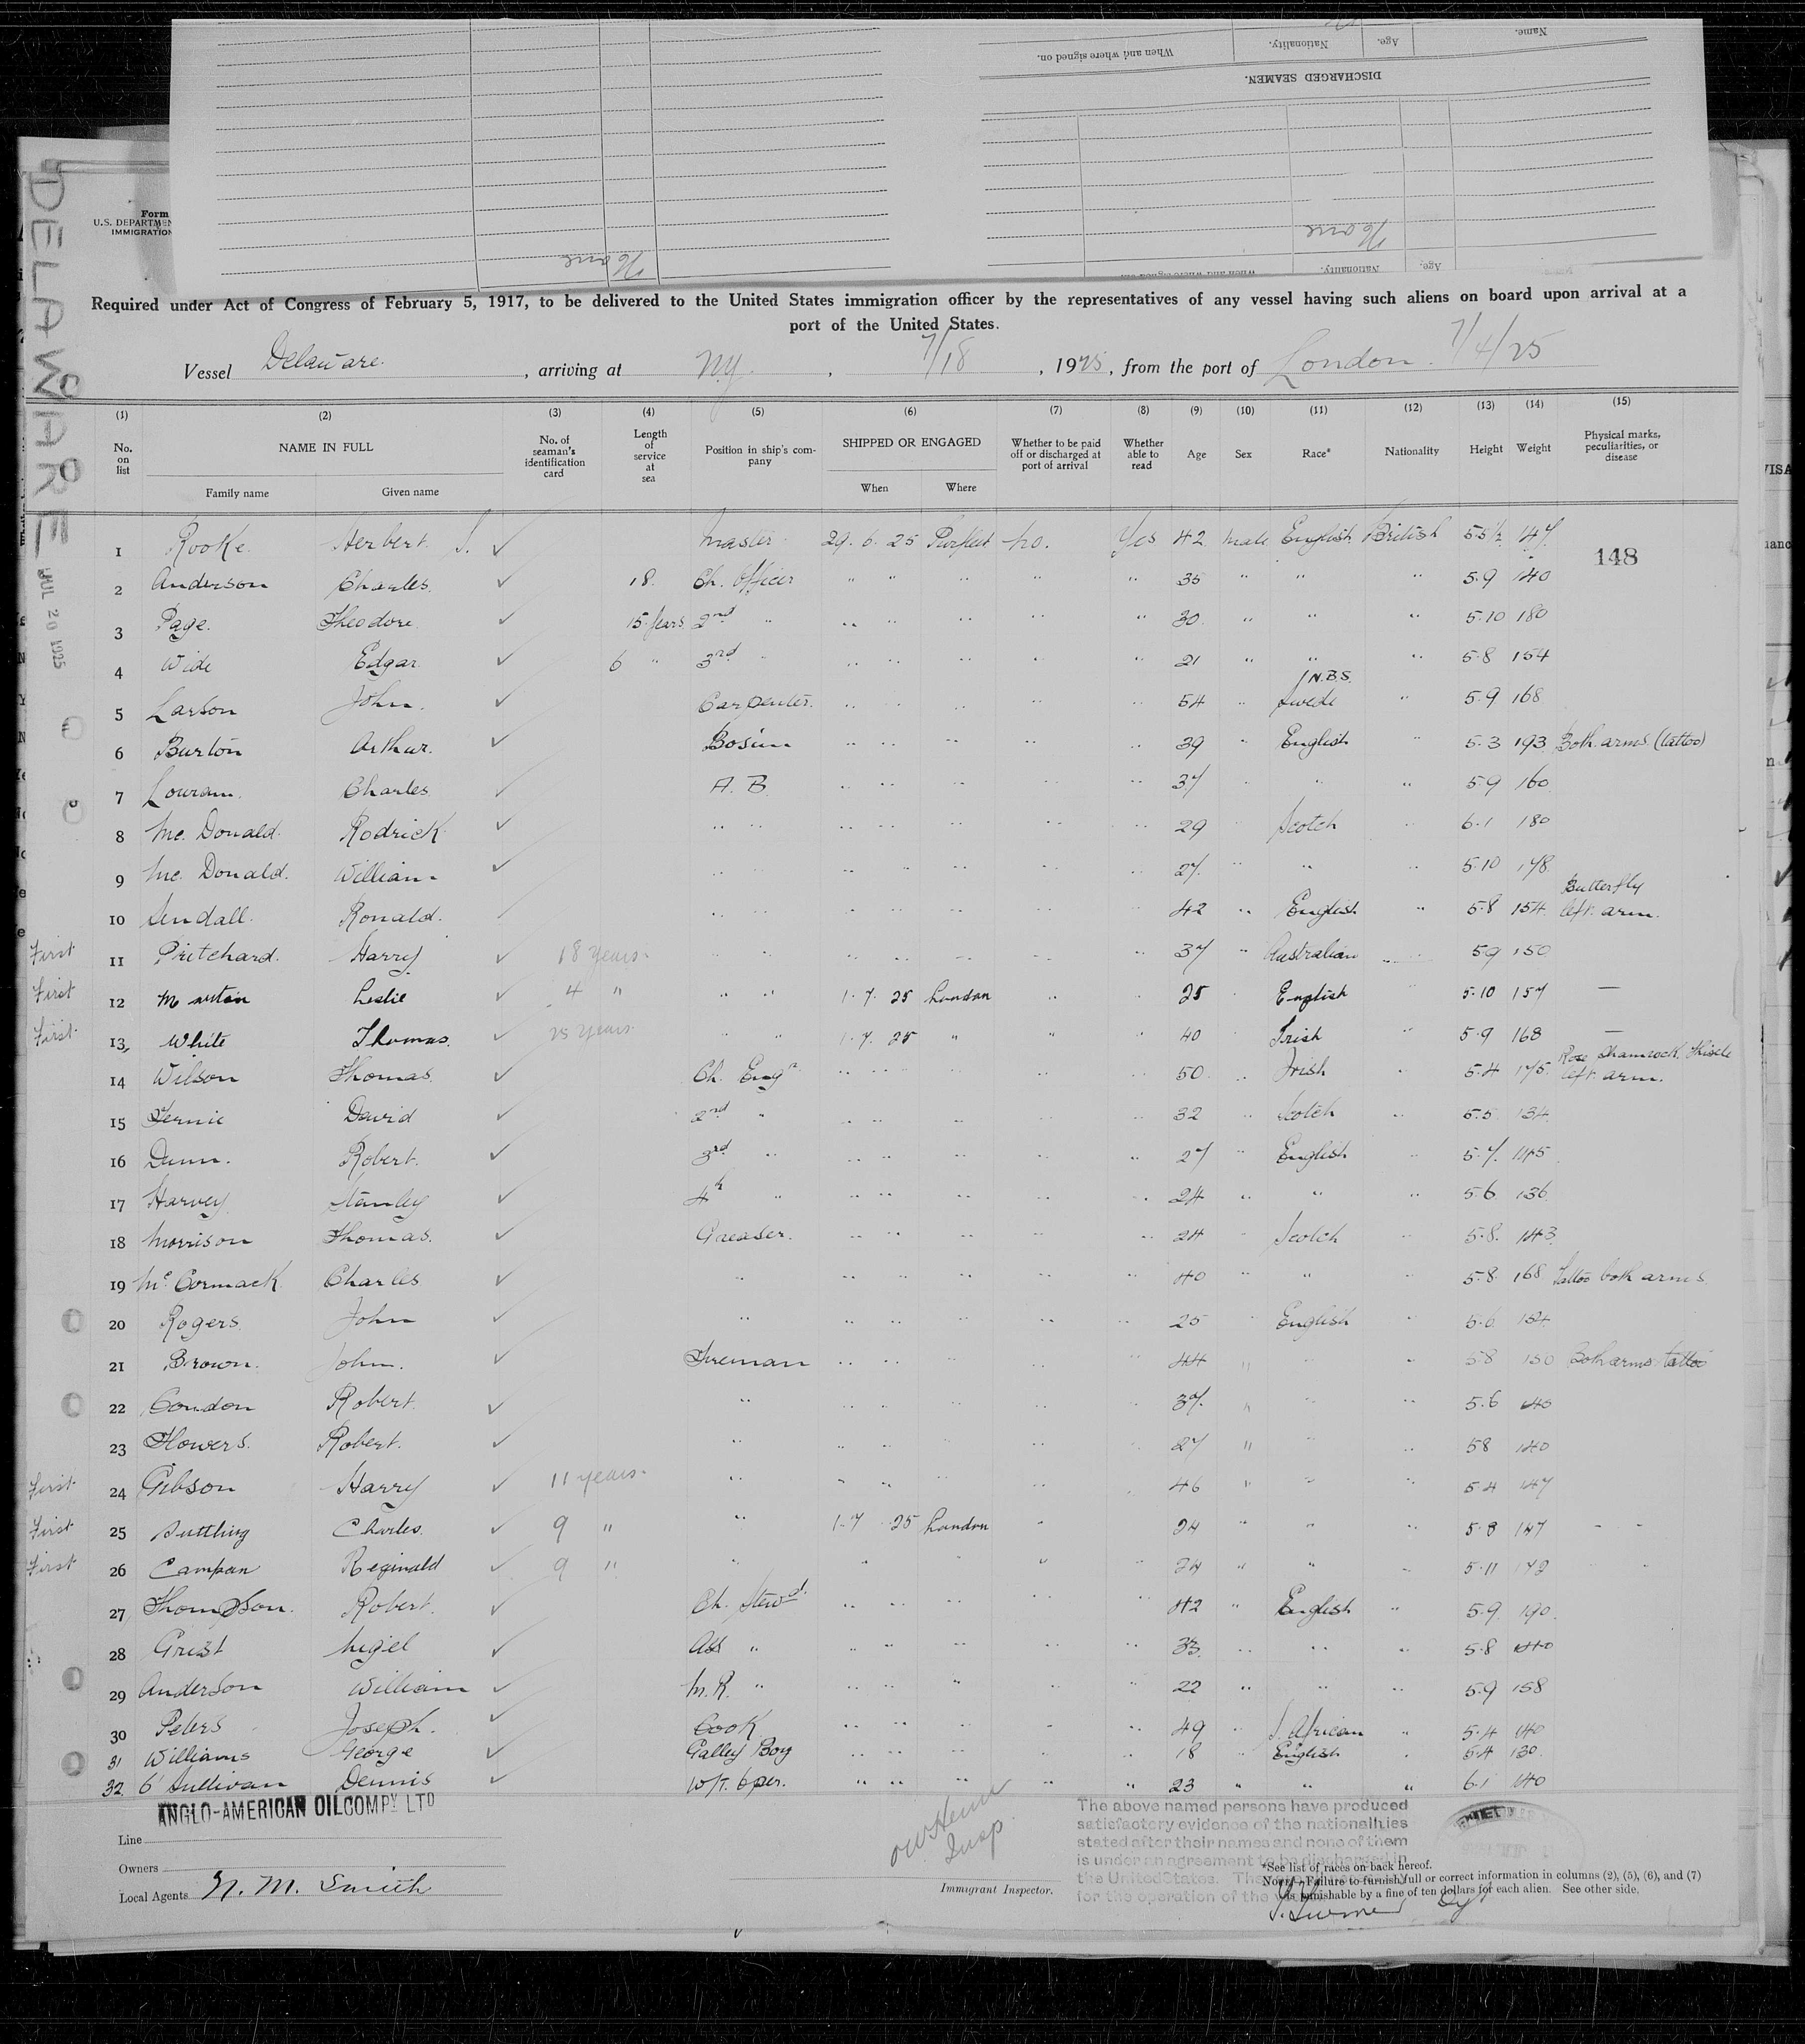 When and where signed on.
Nationality.
Age.
Name.
DISCHARGED SEAMEN.
None
None
When and where signed on
Nationality.
Age.
DELAWARE
JUL 20 1925
Form
U.S. DEPARTMEN
IMMIGRATION
Required under Act of Congress of February 5, 1917, to be delivered to the United States immigration officer by the representatives of any vessel having such aliens on board upon arrival at a
port of the United States.
Vessel Delaware, arriving at N.Y., 7/18, 1925, from the port of London 7/4/25
(1) (2) (3) (4) (5) (6) (7) (8) (9) (10) (11) (12) (13) (14) (15)
No. on list
NAME IN FULL
Family name Given name
No. of seaman's identification card
Length of service at sea
Position in ship's company
SHIPPED OR ENGAGED
When Where
Whether to be paid off or discharged at port of arrival
Whether able to read
Age
Sex
Race*
Nationality
Height
Weight
Physical marks, peculiarities, or disease
1 Rooke Herbert S. ✓ Master 29. 6. 25 Purfleet No. Yes 42 Male English British 5-5½ 147
148
2 Anderson Charles ✓ 18. Ch. Officer " " " " " 35 " " " 5-9 140
3 Page Theodore ✓ 15 years 2nd " " " " " " 30 " " " 5-10 180
4 Wide Edgar ✓ 6 " 3rd " " " " " " 21 " " " 5-8 154
N.B.S.
5 Larson John ✓ Carpenter " " " " " 54 " Swede " 5-9 168
6 Burton Arthur ✓ Bosun " " " " " 39 " English " 5-3 193 Both arms (tattoo)
7 Louram Charles ✓ A. B. " " " " " 37 " " " 5-9 160
8 Mc. Donald Rodrick ✓ " " " " " " " 29 " Scotch " 6-1 180
9 Mc. Donald William ✓ " " " " " " " 27 " " " 5-10 178
10 Sendall Ronald ✓ " " " " " " " 42 " English " 5-8 154 Butterfly left arm.
First 11 Pritchard Harry ✓ 18 years " " " " " " " 37 " Australian " 5-9 150
First 12 Leslie ✓ 4 " " " 1. 7. 25 London " " 25 " English " 5-10 157 —
First 13 White Thomas ✓ 25 years " " 1. 7. 25 " " " 40 Irish " 5-9 168 —
14 Wilson Thomas ✓ Ch. Engr " " " " " 50 " Irish " 5-4 175 Rose Shamrock, Thistle left arm.
15 Fernie David ✓ 2nd " " " " " " 32 " Scotch " 5-5 134
16 Dunn Robert ✓ 3rd " " " " " " 27 " English " 5-7 145
17 Harvey Stanley ✓ 4th " " " " " " 24 " " " 5-6 136
18 Morrison Thomas ✓ Greaser " " " " " 24 " Scotch " 5-8 143
19 Mc Cormack Charles ✓ " " " " " " 40 " " " 5-8 168 Tattoo both arms
20 Rogers John ✓ " " " " " " 25 " English " 5-6 134
21 Brown John ✓ Fireman " " " " " 44 " " " 5-8 150 Both arms tattoo
22 Condon Robert ✓ " " " " " " 37 " " " 5-6 140
23 Flowers Robert ✓ " " " " " " 27 " " " 5-8 140
First 24 Gibson Harry ✓ 11 years " " " " " " 46 " " " 5-4 147
First 25 Suttling Charles ✓ 9 " " 1-7 25 London " " 24 " " " 5-8 147 - -
First 26 Campan Reginald ✓ 9 " " " " " " 24 " " " 5-11
27 Thompson Robert ✓ Ch. Stewd " " " " " 42 " English " 5-9 190
28 Grist Nigel ✓ Ass " " " " " " 33 " " " 5-8 140
29 Anderson William ✓ M.R. " " " " " " 22 " " " 5-9 158
30 Peters Joseph ✓ Cook " " " " " 49 " S. African " 5-4 140
31 Williams George ✓ Galley Boy " " " " " 18 " English " 5-4 130
32 O'Sullivan Dennis ✓ W/T. Oper. " " " " " 23 " " " 6-1 140
ANGLO-AMERICAN OIL COMPY LTD
Line
Owners
Local Agents N. M. Smith
Insp
Immigrant Inspector.
The above named persons have produced
satisfactory evidence of the nationalities
stated after their names and none of them
is under an agreement to be discharged in
the United States.
for the operation of the
*See list of races on back hereof.
Note.—Failure to furnish full or correct information in columns (2), (5), (6), and (7)
is punishable by a fine of ten dollars for each alien. See other side.